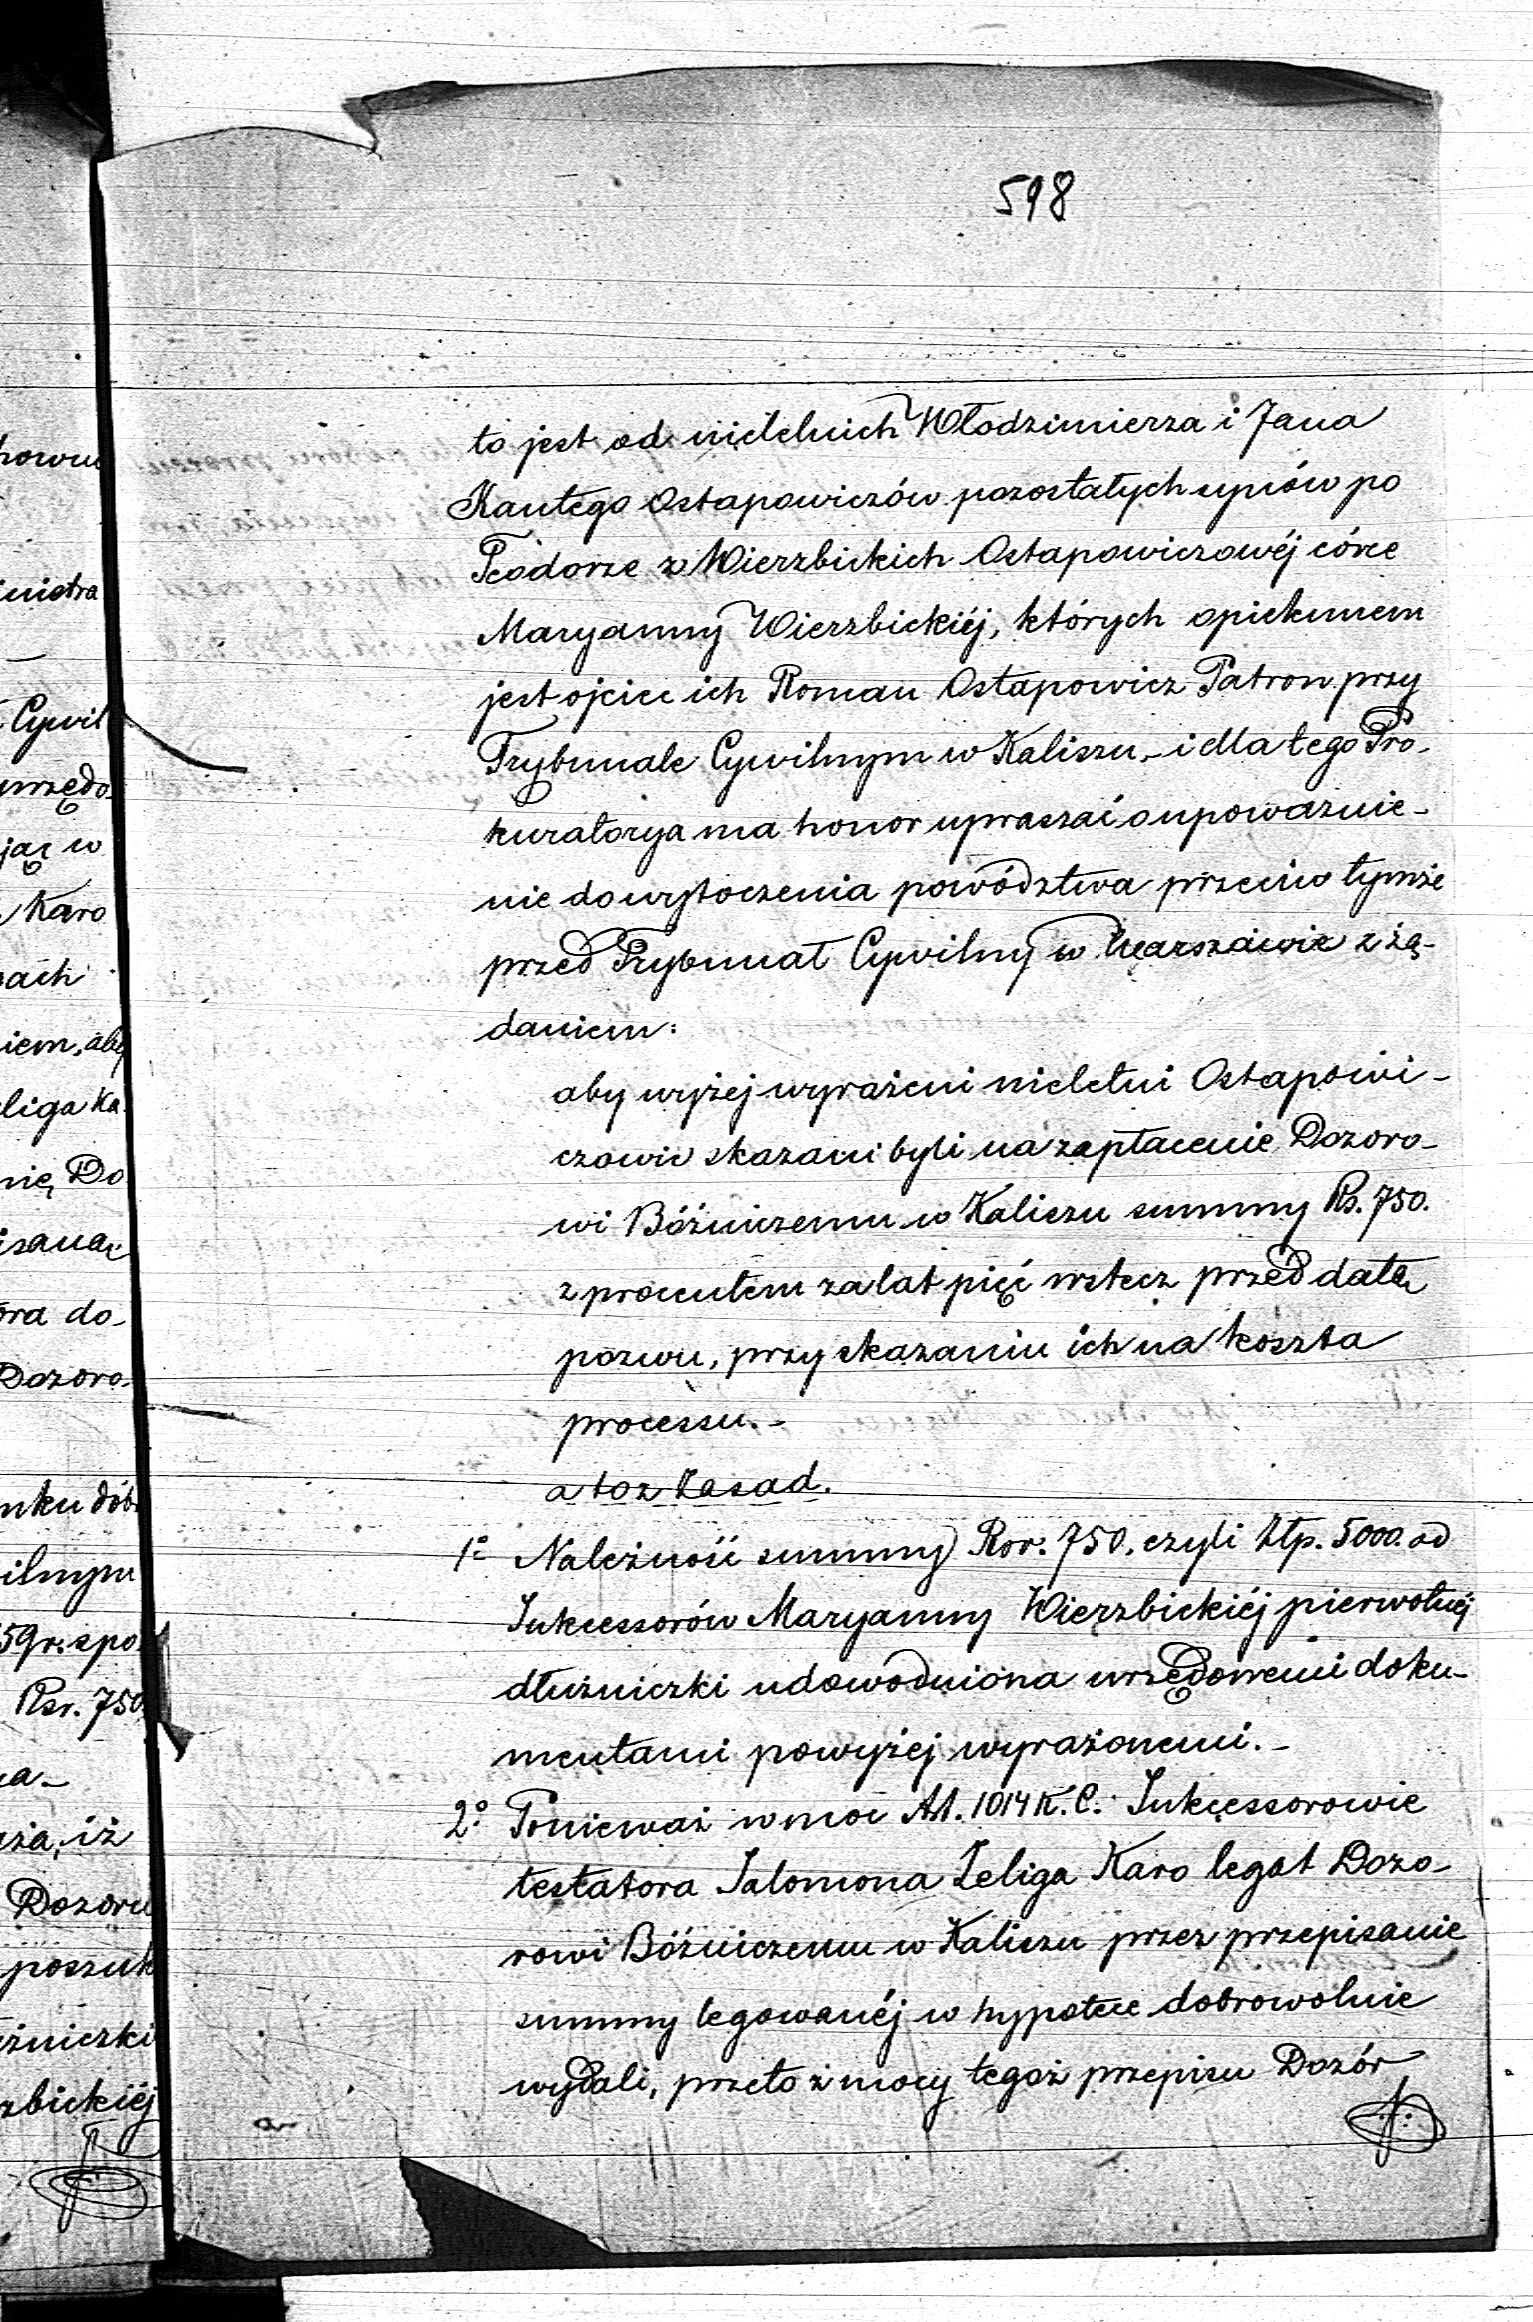 598
to jest od nieletnich Włodzimierza i Jana
Kantego Ostapowiczów pozostałych synów po
Teodorze z Wierzbickich Ostapowiczowéj córce
Maryanny Wierzbickiéj, których opiekunem
jest ojciec ich Roman Ostapowicz Patron przy
Trybunale Cywilnym w Kaliszu, – i dla tego Pro-
kuratorya ma honor upraszać o upoważnie-
nie do wytoczenia powództwa przeciw tymże
przed Trybunał Cywilny w Warszawie z żą-
daniem:
aby wyżej wyrażeni nieletni Ostapowi-
czowie skazani byli na zapłacenie Dozoro-
wi Bóżniczemu w Kaliszu summy Rs. 750.
z procentem za lat pięć wstecz przed datą
pozwu, przy skazaniu ich na koszta
processu. –
a to z Zasad.
1º Należność summy Rsr. 750. czyli Złp. 5000. od
Sukcessorów Maryanny Wierzbickiéj pierwotnéj
dłużniczki udowodniona urzędowemi doku-
mentami powyżej wyrażonemi. –
2º Ponieważ w moc Art. 1014 K. C. Sukcessorowie
testatora Salomona Zeliga Karo legat Dozo-
rowi Bóżniczemu w Kaliszu przez przepisanie
summy legowanéj w hypotece dobrowolnie
wydali, przeto z mocy tegoż przepisu Dozór
nistra
Cywil
urzędo-
jąc w
Karo
iem, aby
eliga Ka-
nie, Do
isaną
óra do-
Dozoro-
nku dób
ilnym
59 r. spo
Rsr. 750.
na –
aża, iż
Dozoru
poszuk
użniczki
zbickiéj